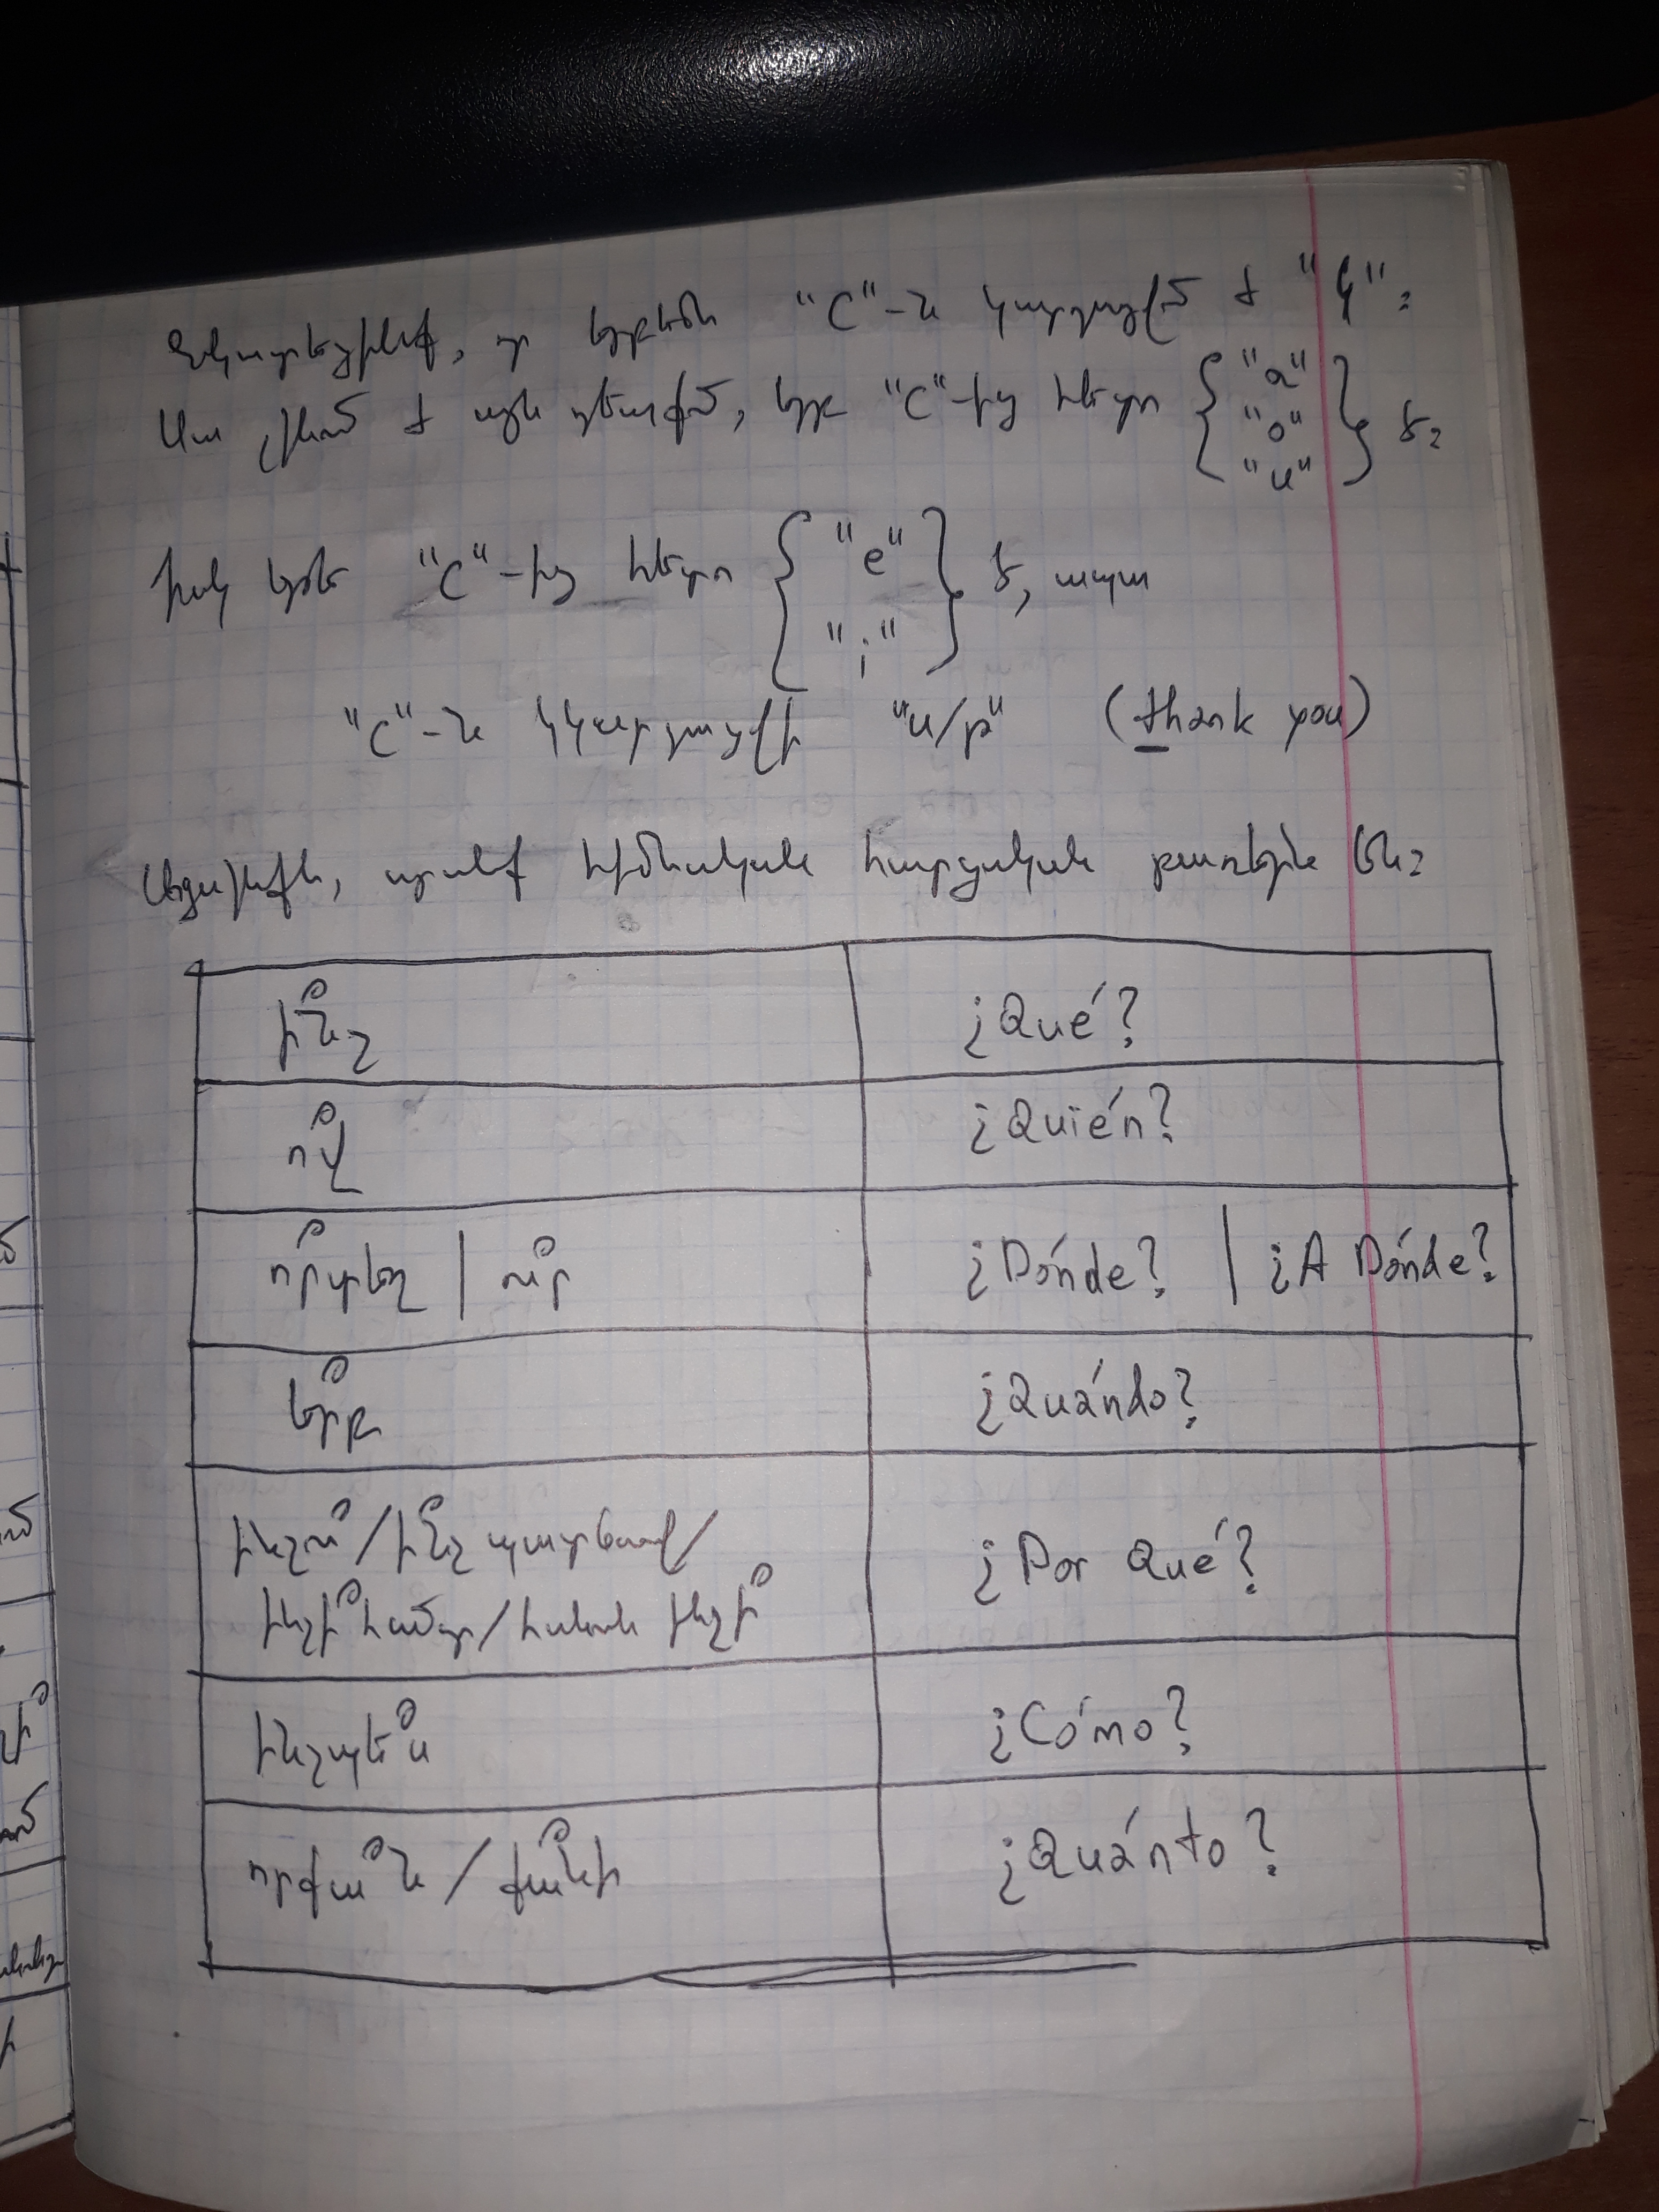 Նկատեցինք, որ երբեմն "C"-ն կարդացվում է "Կ":
Սա լինում է այն դեպքում, երբ "C"-ից հետո { "a" "o" "u" } է:
Իսկ եթե "C"-ից հետո { "e" "i" } է, ապա
"C"-ն կկարդացվի "ս/թ" (thank you)
որոնք հիմնական հարցական բառերն են:
ի՞նչ | ¿Qué?
ո՞վ | ¿Quién?
ո՞րտեղ | ո՞ւր | ¿Dónde? | ¿A Dónde?
ե՞րբ | ¿Quándo?
ինչու՞ / ի՞նչ պատճառով /
ինչի՞ համար / հանուն ինչի՞ | ¿Por Qué?
ինչպե՞ս | ¿Cómo?
որքա՞ն / քա՞նի | ¿Quánto?